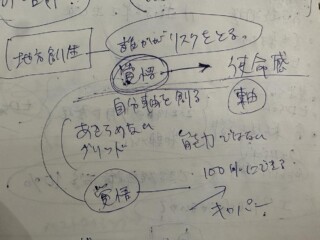 誰かがリスクをとる。
地方創生
覚悟 → 使命感
自分軸を創る 軸
あきらめない
グリッド 能力ではない
100%にできる
覚悟